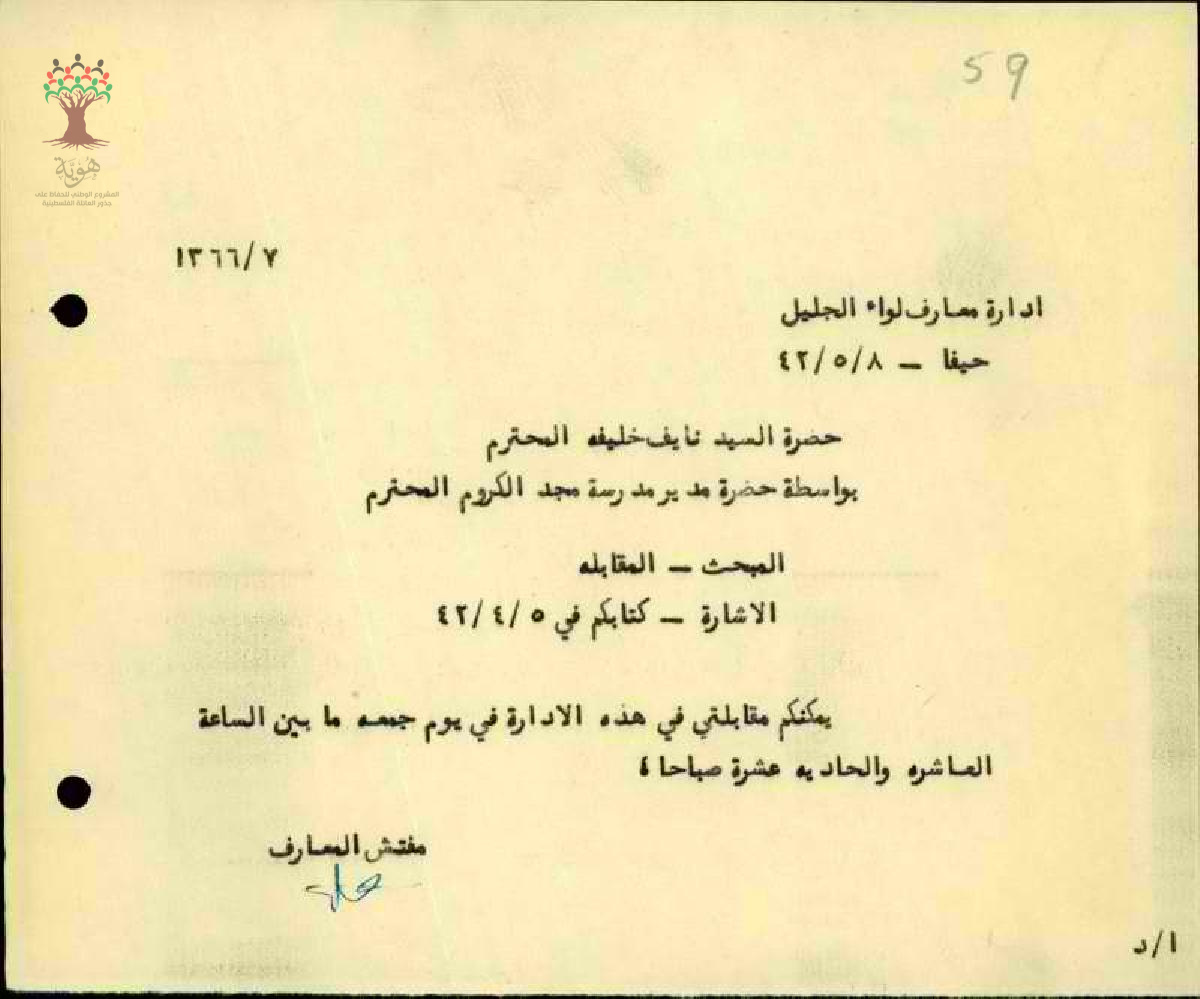 59
هُوِيَّة
المشروع الوطني للحفاظ على
جذور العائلة الفلسطينية
١٣٦٦/٧
ادارة معارف لواء الجليل
حيفا – ٤٢/٥/٨
حضرة السيد نايف خليفه المحترم
بواسطة حضرة مدير مدرسة مجد الكروم المحترم
المبحث – المقابله
الاشارة – كتابكم في ٤٢/٤/٥
يمكنكم مقابلتي في هذه الادارة في يوم جمعه ما بين الساعة
العاشره والحاديه عشرة صباحا ؛
مفتش المعارف
ا/د